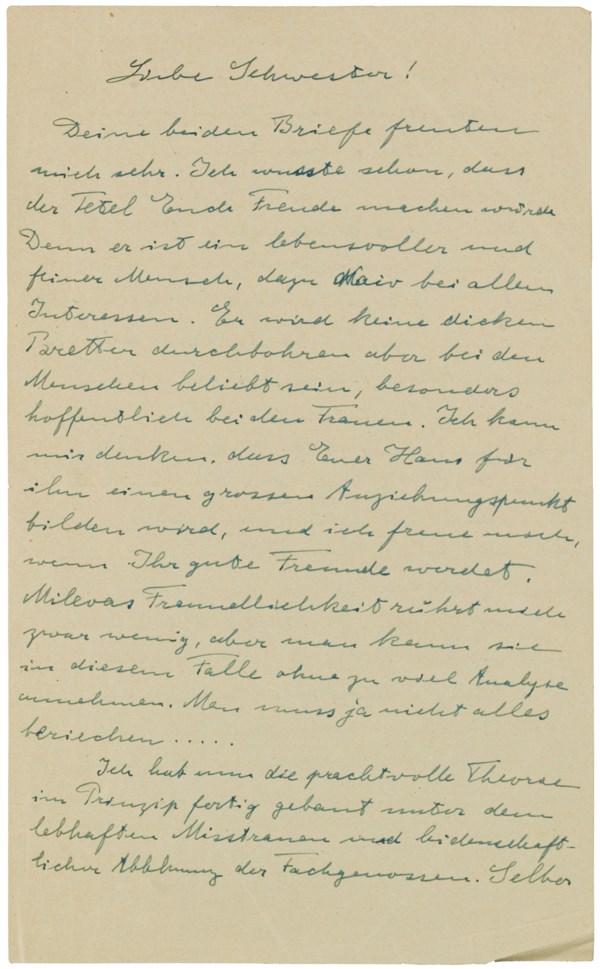 Liebe Schwester!
Deine beiden Briefe freuten
mich sehr. Ich wusste schon, dass
der Tetel Euch Freude machen würde
Denn er ist ein lebensvoller und
feiner Mensch, dazu naiv bei allem
Interessen. Er wird keine dicken
Bretter durchbohren aber bei den
Menschen beliebt sein, besonders
hoffentlich bei den Frauen. Ich kann
mir denken, dass Euer Haus für
ihn einen grossen Anziehungspunkt
bilden wird, und ich freue mich,
wenn Ihr gute Freunde werdet.
Milevas Freundlichkeit rührt mich
zwar wenig, aber man kann sie
in diesem Falle ohne zu viel Analyse
annehmen. Man muss ja nicht alles
beriechen.....
Ich hab nun die prachtvolle Theorie
im Prinzip fertig gebaut unter dem
lebhaften Misstrauen und leidenschaft-
licher Ablehnung der Fachgenossen. Selber